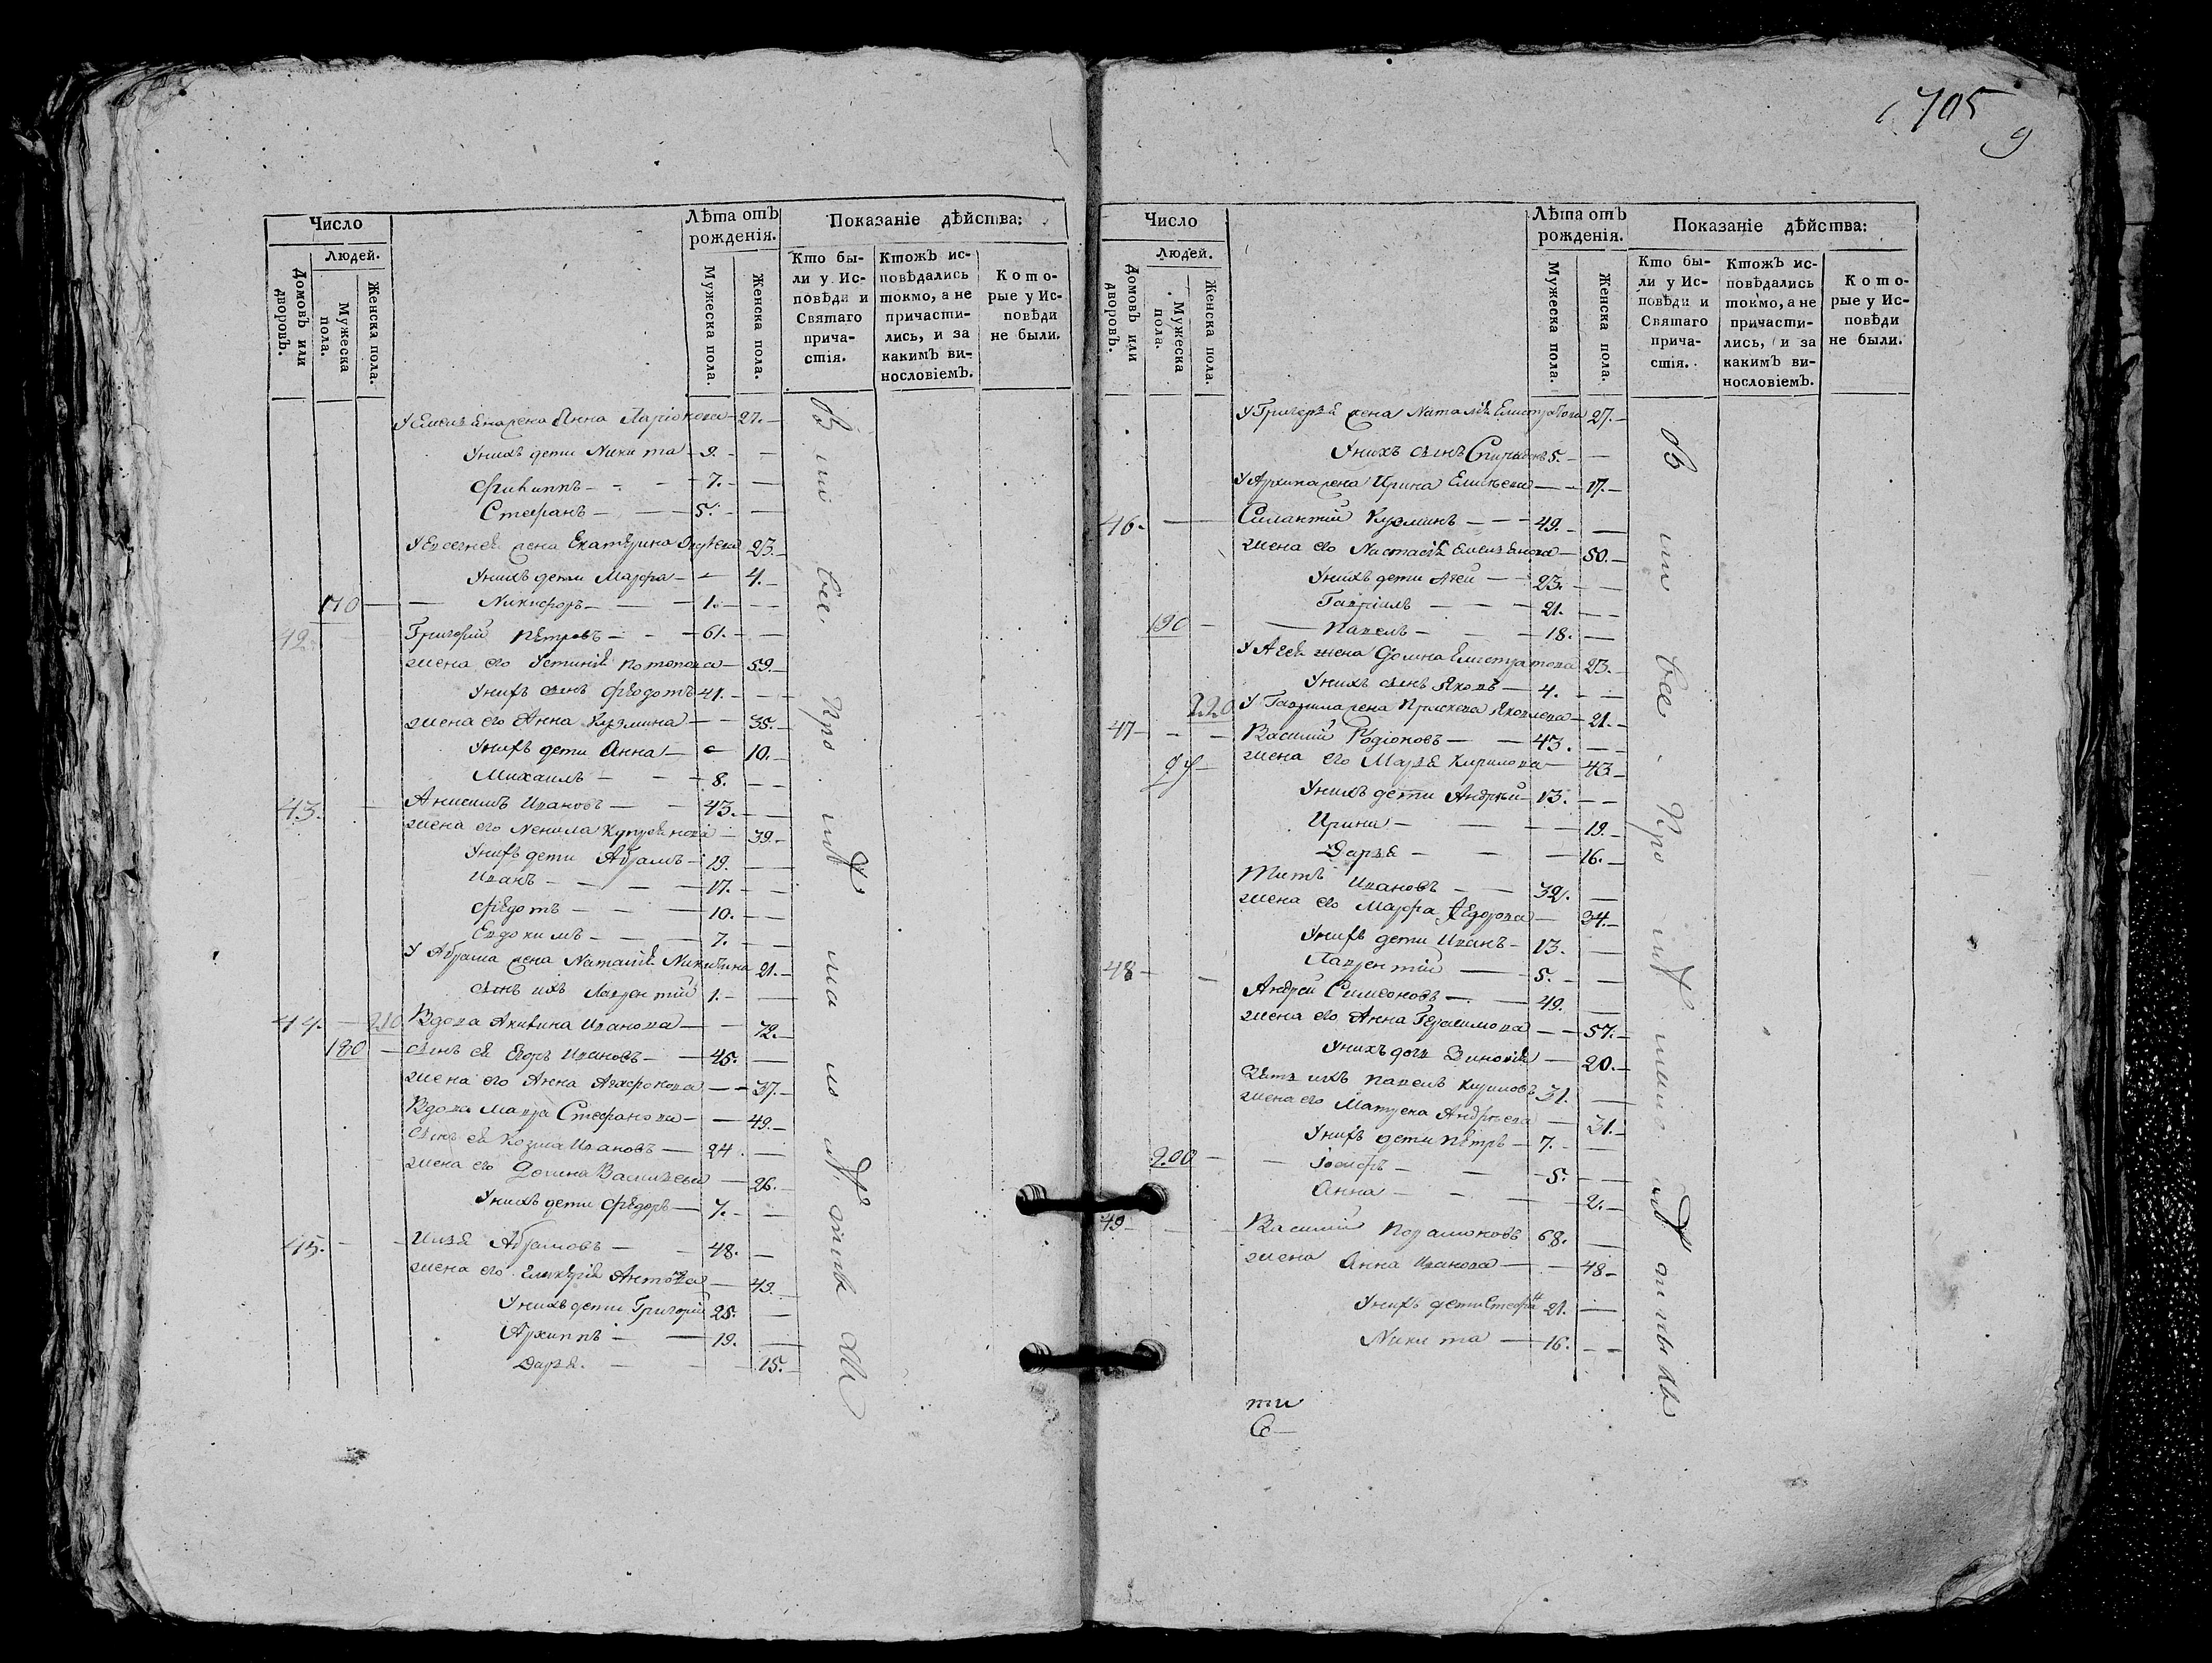 705
9
Число
Людей.
Домовъ или дворовъ.
Мужеска пола.
Женска пола.
Лѣта отъ рожденія.
Мужеска пола.
Женска пола.
Показаніе дѣйства:
Кто были у Исповѣди и Святаго причастія.
Ктожъ исповѣдались токмо, а не причастились, и за какимъ винословіемъ.
Которые у Исповѣди не были.
жена Анна Ларіонова 27.
У нихъ дети Никита 9.
Филиппъ 7.
Стефанъ 5.
жена Екатерина 23.
У нихъ дети Марфа 4.
170 Никифоръ 1.
42. Григорий Петровъ 61.
жена его Устинія Потопова 59.
У нихъ сынъ Федотъ 41.
жена его Анна Кузмина 35.
У нихъ дети Анна 10.
Михаилъ 8.
43. Анисимъ Ивановъ 43.
жена его Ненила 39.
У нихъ дети Абрамъ 19.
Иванъ 17.
Федотъ 10.
Евдокимъ 7.
У Абрама жена Наталія Никитина 21.
сынъ ихъ Лаврентий 1.
44. 210 Вдова Акивина Иванова 72.
180 сынъ ея Егоръ Ивановъ 45.
жена его Анна Агафонова 37.
Вдова Мавра Стефанова 49.
сынъ ея Козма Ивановъ 24.
жена его Домна Васильева 26.
У нихъ дети Федоръ 7.
45. Илья Абрамовъ 48.
жена его Гликерія Антонова 49.
У нихъ дети Григорий 25.
Архиппъ 19.
Дарья 15.
Число
Людей.
Домовъ или дворовъ.
Мужеска пола.
Женска пола.
Лѣта отъ рожденія.
Мужеска пола.
Женска пола.
Показаніе дѣйства:
Кто были у Исповѣди и Святаго причастія.
Ктожъ исповѣдались токмо, а не причастились, и за какимъ винословіемъ.
Которые у Исповѣди не были.
У Григорья жена Наталія Елистратова 27.
У нихъ сынъ Спиридонъ 5.
У Архипа жена Ирина Елисеева 17.
46. Силантий Кузминъ 49.
жена его Настасія Емельянова 50.
У нихъ дети Агей 23.
Гавриилъ 21.
190 Павелъ 18.
У Агея жена Домна Елистратова 23.
У нихъ сынъ Яковъ 4.
220 У Гаврила жена Прасковья Яковлева 21.
47 Василий Родіоновъ 43.
жена его Марья Кирилова 43.
У нихъ дети Андрей 13.
Ирина 19.
Дарья 16.
Титъ Ивановъ 39.
жена его Марфа Федорова 34.
У нихъ дети Иванъ 13.
48 Лаврентий 5.
Андрей Симеоновъ 49.
жена его Анна Герасимова 57.
У нихъ дочь Зиновія 20.
Зять ихъ Павелъ Кириловъ 31.
жена его Матрена Андреева 31.
У нихъ дети Петръ 7.
200 Іосифъ 5.
Анна 2.
49 Василий 68.
жена Анна Иванова 48
У нихъ дети Стефанъ 21.
Никита 16.